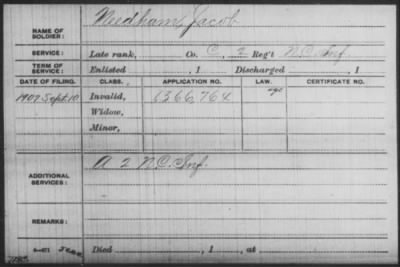 NAME OF SOLDIER: Needham, Jacob
SERVICE: Late rank, Co. C, 2 Reg't N.C. Inf
TERM OF SERVICE: Enlisted , 1 Discharged , 1
DATE OF FILING. CLASS. APPLICATION NO. LAW. CERTIFICATE NO.
1907 Sept. 10 Invalid, 1366,764 age
Widow,
Minor,
ADDITIONAL SERVICES: A 2 N.C. Inf.
REMARKS:
Died , 1 , at